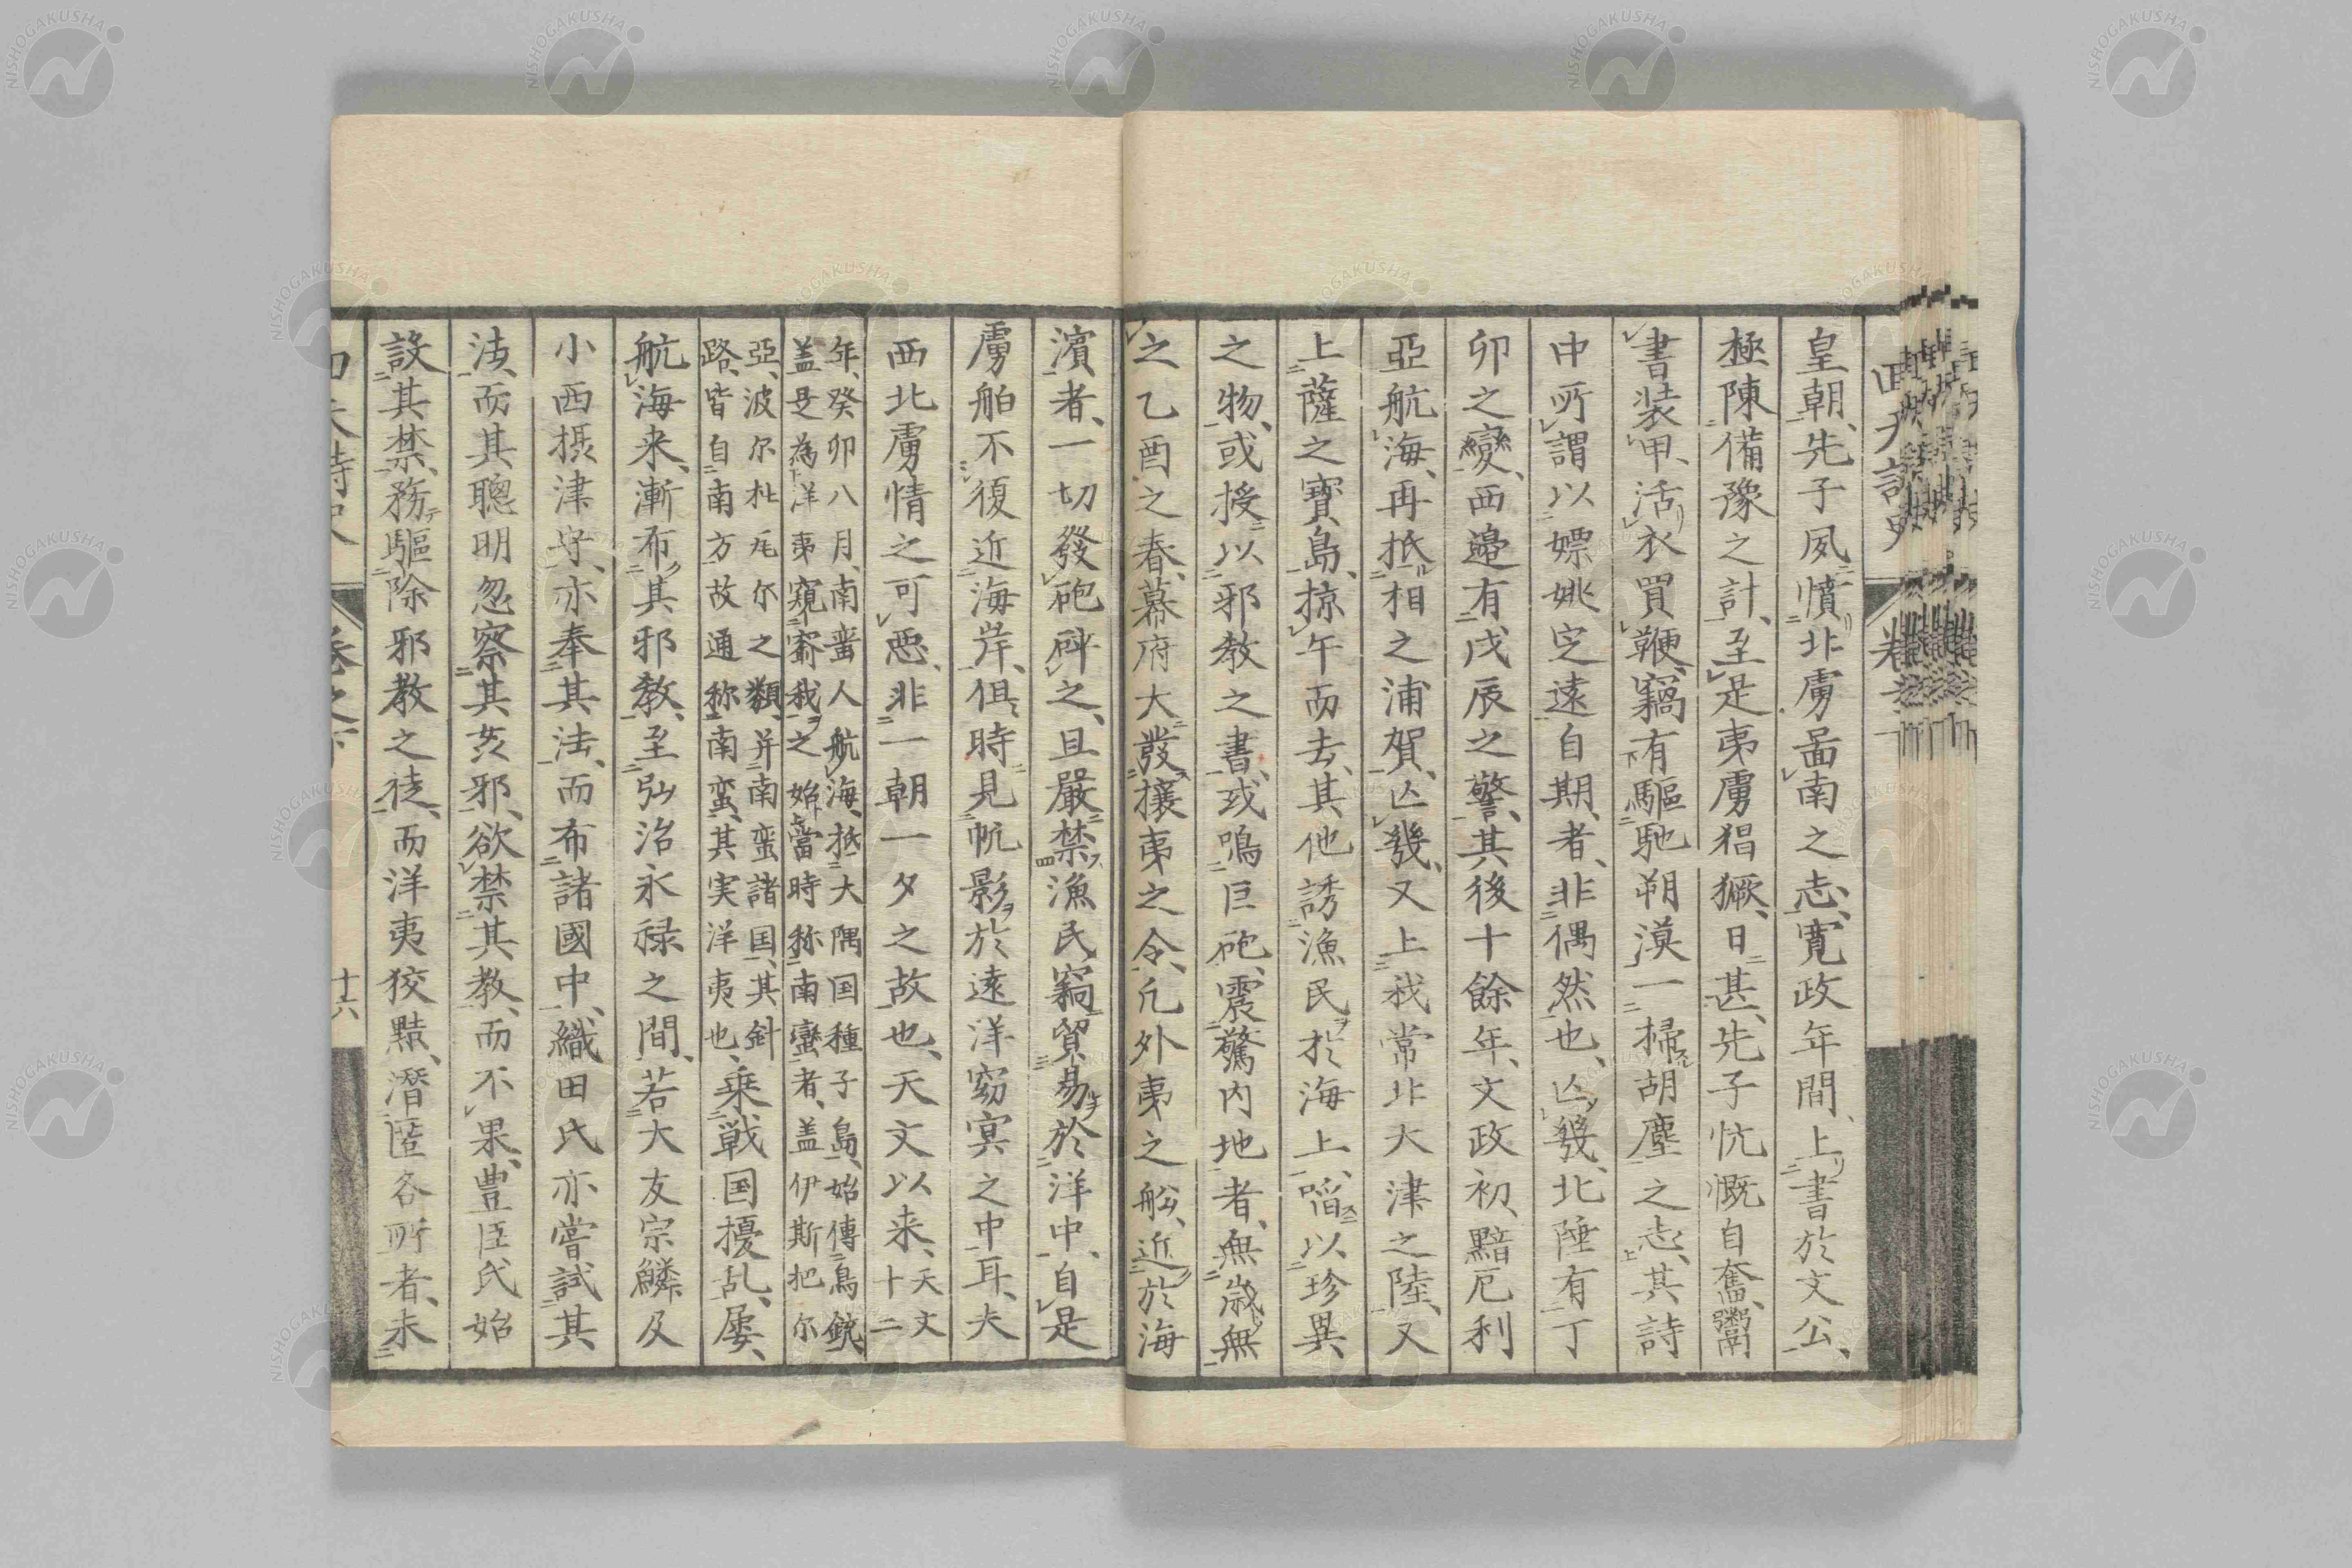 皇朝、先子夙憤北虜啚南之志、寛政年間、上書於文公、
極陳備豫之計、至是夷虜猖獗、日甚、先子忼慨自奮、鬻
書装甲、活衣買鞭、竊有驅馳朔漠一掃胡塵之志、其詩
中所謂以嫖姚㝎遠自期、者、非偶然也、亾幾、北陲有丁
卯之變、西邉有戊辰之警、其後十餘年、文政初、黯厄利
亞航海、再抵相之浦賀、亾幾、又上我常北大津之陸、又
上薩之寶島、掠牛而去、其他誘漁民於海上、啗以珍異
之物、或授以邪教之書、或鳴巨砲、震驚内地者、無歳無
之乙酉之春、幕府大發攘夷之令、凡外夷之舩、近於海
濱者、一切發砲碎之、且嚴禁漁民竊貿易於洋中、自是
虜舶不復近海岸、但時見帆影於遠洋窈冥之中耳、夫
西北虜情之可悪、非一朝一夕之故也、天文以来、天文十二
年、癸卯八月、南蛮人航海、抵大隅国種子島、始傳鳥銃
盖是為洋夷窺窬我之始、當時称南蠻者、盖伊斯把尓
亞、波尓杜瓦尓之類、并南蛮諸国、其針
路、皆自南方故通称南蛮、其実洋夷也、乗戦国擾乱、屡
航海来、漸布其邪教、至弘治永禄之間、若大友宗鱗及
小西摂津守、亦奉其法、而布諸國中、織田氏亦嘗試其
法、而其聰明忽察其亥邪、欲禁其教、而不果、豊臣氏始
設其禁、務驅除邪教之徒、而洋夷狡黠、潜匿各所者、未
卷之下
十六